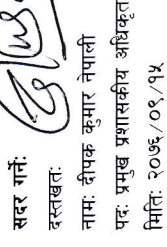 सदर गर्नेः
दस्तखतः
नामः दीपक कुमार नेपाली
पदः प्रमुख प्रशासकीय अधिकृत
मितिः २०७६/०९/१५